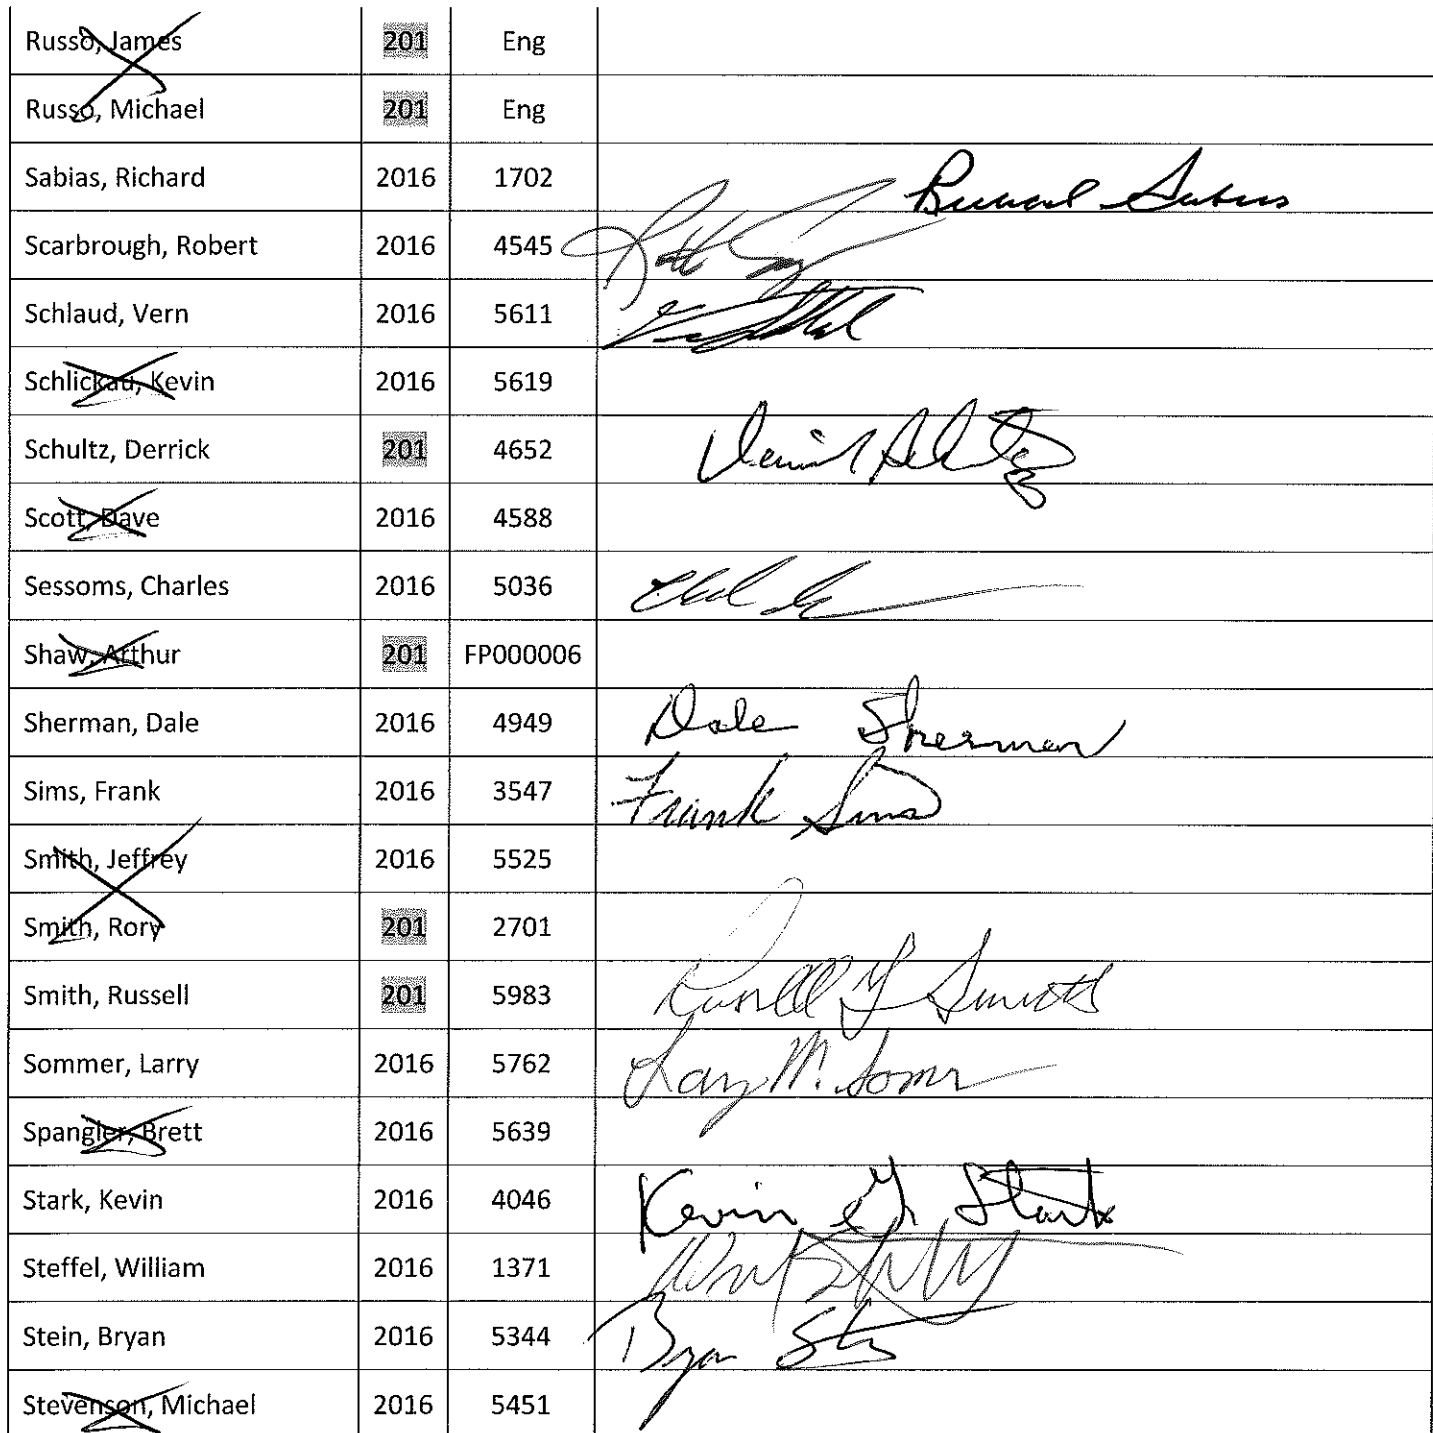 Russo, James 201 Eng
Russo, Michael 201 Eng
Sabias, Richard 2016 1702
Scarbrough, Robert 2016 4545
Schlaud, Vern 2016 5611
Schlickau, Kevin 2016 5619
Schultz, Derrick 201 4652
Scott, Dave 2016 4588
Sessoms, Charles 2016 5036
Shaw, Arthur 201 FP000006
Sherman, Dale 2016 4949 Dale Sherman
Sims, Frank 2016 3547 Frank Sims
Smith, Jeffrey 2016 5525
Smith, Rory 201 2701
Smith, Russell 201 5983 Russell Smith
Sommer, Larry 2016 5762 Larry M. Sommer
Spangler, Brett 2016 5639
Stark, Kevin 2016 4046 Kevin Stark
Steffel, William 2016 1371
Stein, Bryan 2016 5344 Bryan
Stevenson, Michael 2016 5451